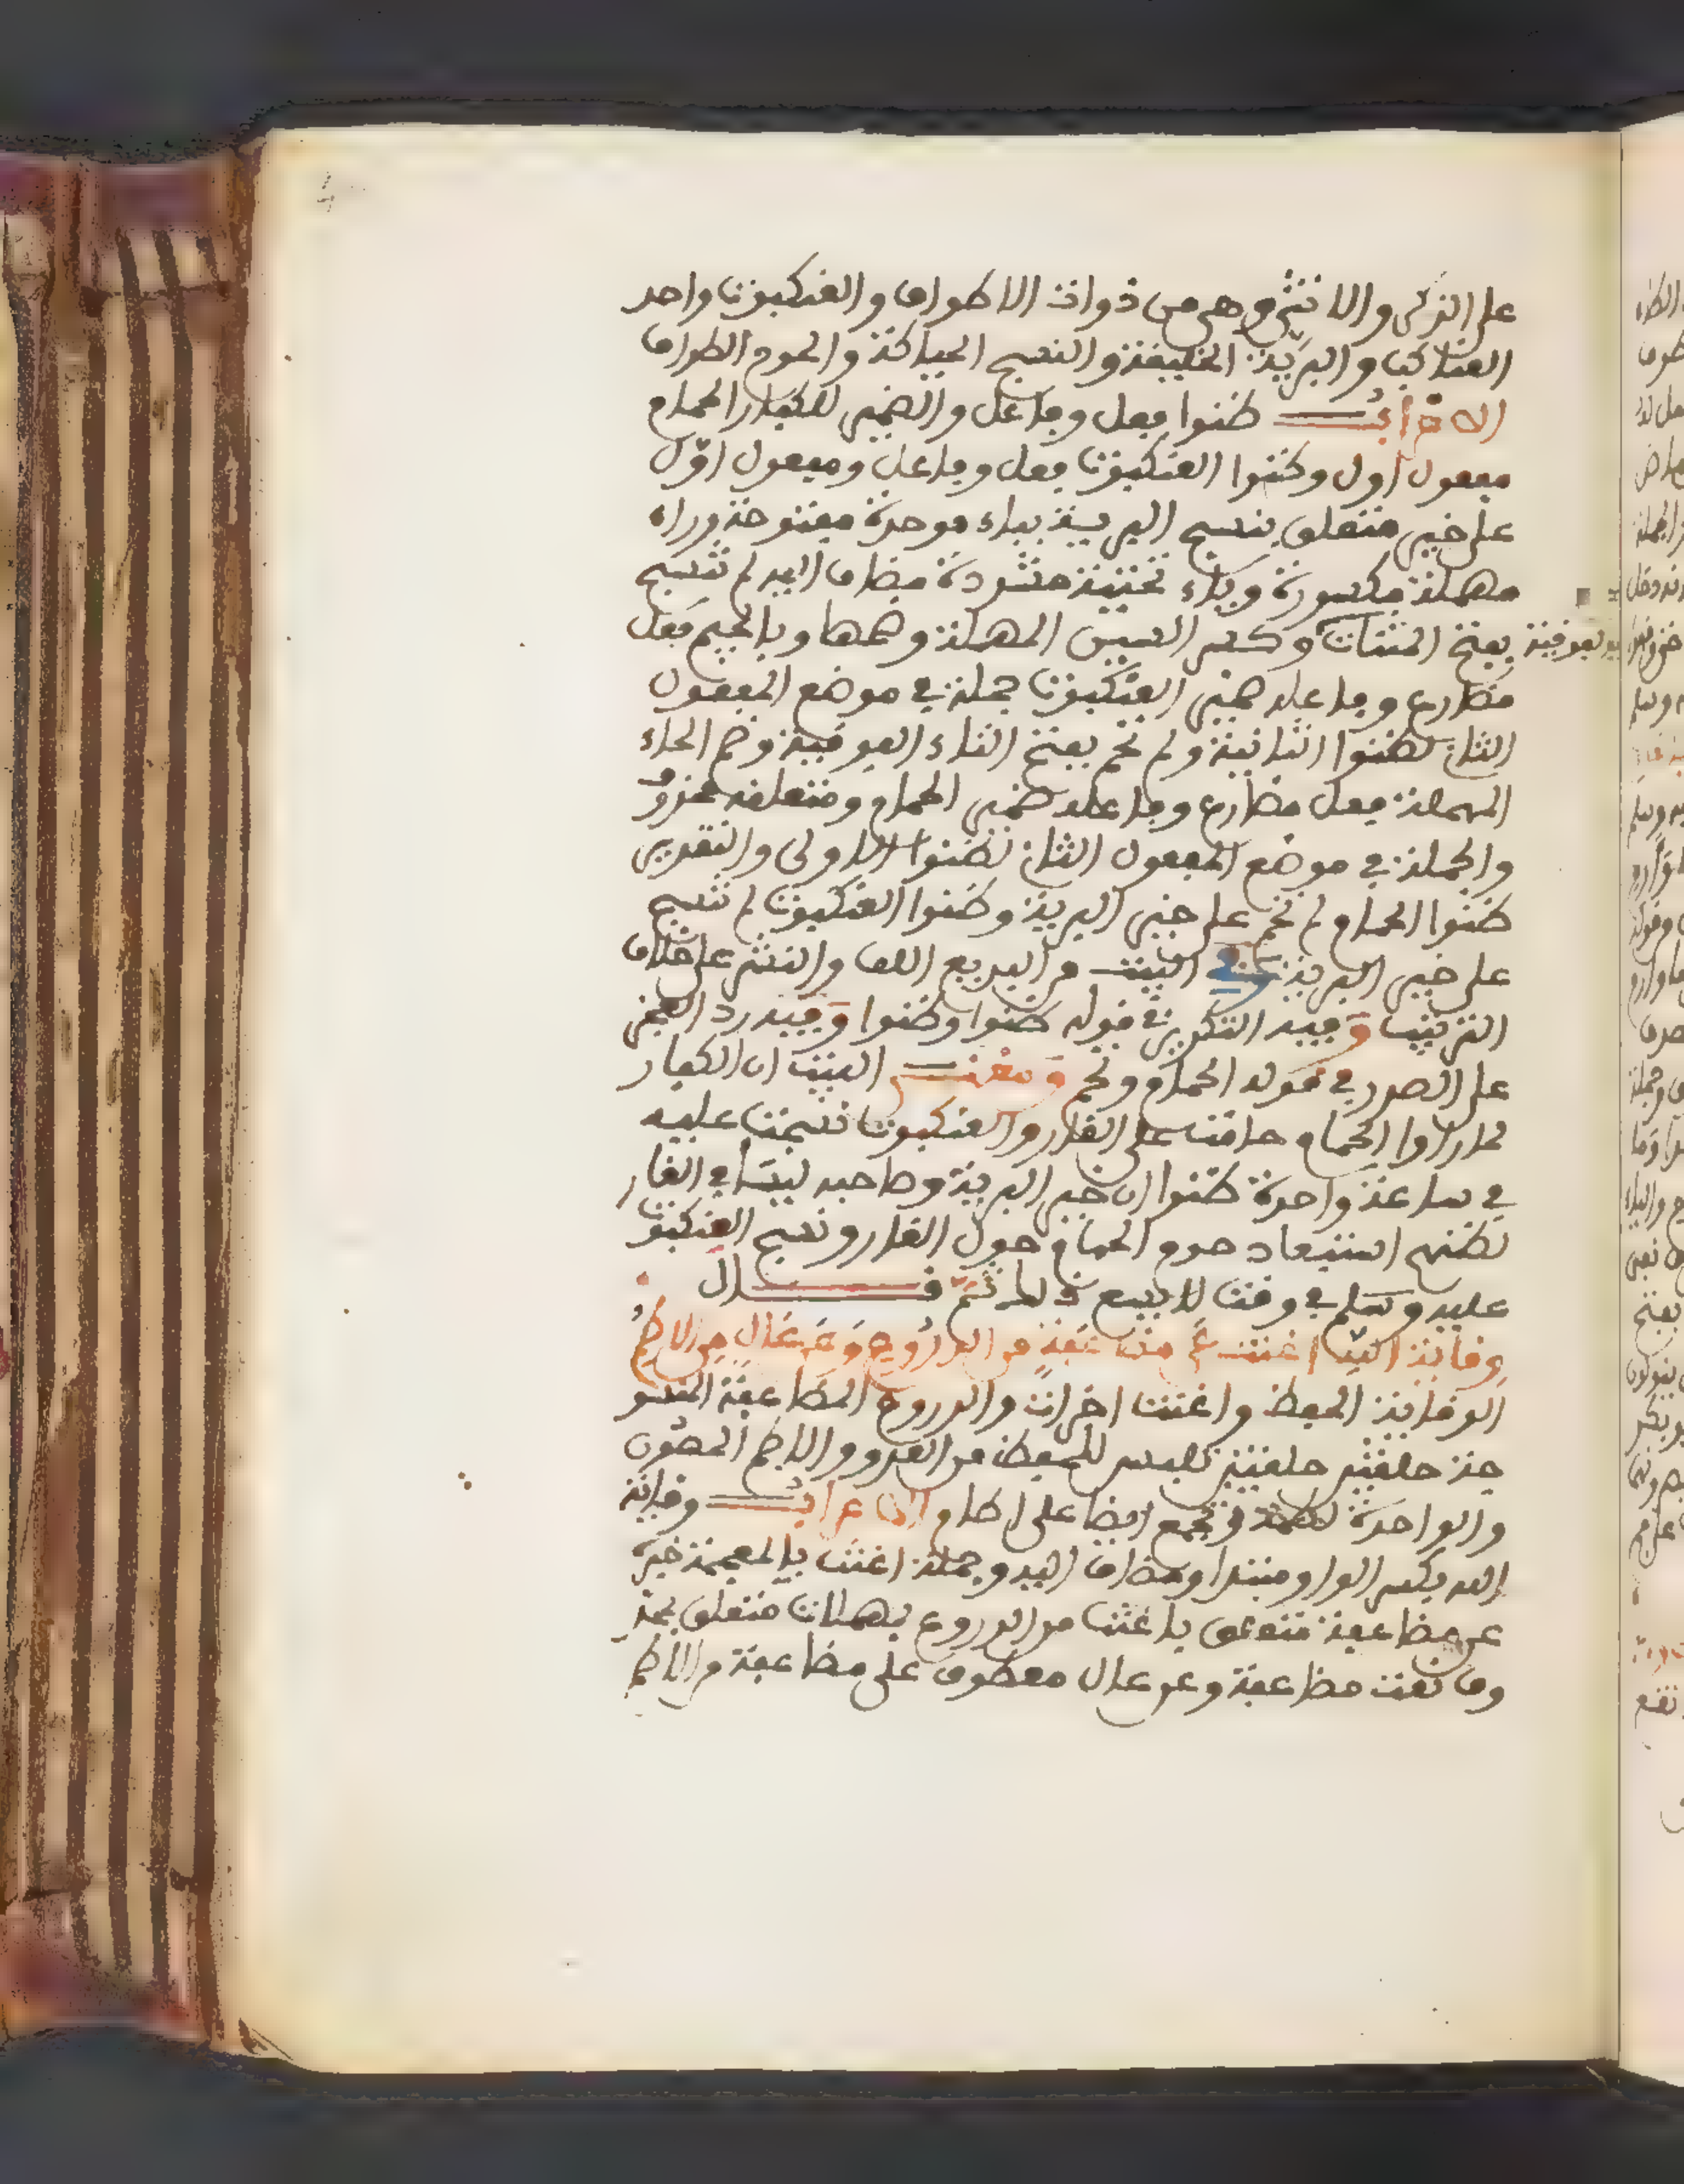 على الذكر والانثى وهي من ذوات الاطواق والعنكبوت واحد
العناكب والبرية الخليفة والنسج الحياكة والحوم الطواف
الاعراب ظنوا فعل وفاعل والضمير للكفار الحمام
مفعول اول وظنوا العنكبوت فعل وفاعل ومفعول اول
على خير متعلق بنسج البرية بباء موحدة مفتوحة وراء
مهملة مكسورة وياء تحتية مشددة مضاف اليه لم تنسج
بفتح المثناة الفوقية وكسر السين المهملة وضمها وبالجيم فعل
مضارع وفاعله ضمير العنكبوت جملة في موضع المفعول
الثان لظنوا الثانية ولم تحم بفتح التاء الفوقية وضم الحاء
المهملة فعل مضارع وفاعله ضمير الحمام ومتعلقه محذوف
والجملة في موضع المفعول الثان لظنوا الاولى والتقدير
ظنوا الحمام لم تحم على خير البرية وظنوا العنكبوت لم تنسج
على خير البرية وفي البيت من البديع اللف والنشر على خلاف
الترتيب وفيه التكرير في قوله ظنوا وظنوا وفيه رد العجز
على الصدر في قوله الحمام وتحم ومعنى البيت ان الكفار
لما راوا الحمام حامت على الغار والعنكبوت نسجت عليه
في ساعة واحدة ظنوا ان خير البرية وصاحبه ليسا في الغار
لظنهم استبعاد حوم الحمام حول الغار ونسج العنكبوت
عليه وسلم في وقت لا يسع ذلك ثم قال
وقاية الله اغنت عن مضاعفة من الدروع وعن عال من الاطم
الوقاية الحفظ واغنت اجزات والدروع المضاعفة المنسو
جة حلقتين حلقتين تلبس للحفظ من العدو والاطم الحصون
والواحدة اطمة وتجمع ايضا على اطام الاعراب وقاية
الله بكسر الواو مبتدا ومضاف اليه وجملة اغنت بالمعجمة خبره
عن مضاعفة متعلق باغنت من الدروع بمهملات متعلق بمحذ
وف نعت مضاعفة وعن عال معطوف على مضاعفة من الاطم